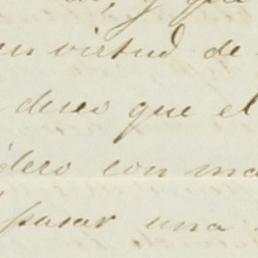 y que
en virtud de
deseo que el
dero con ma
pasar una